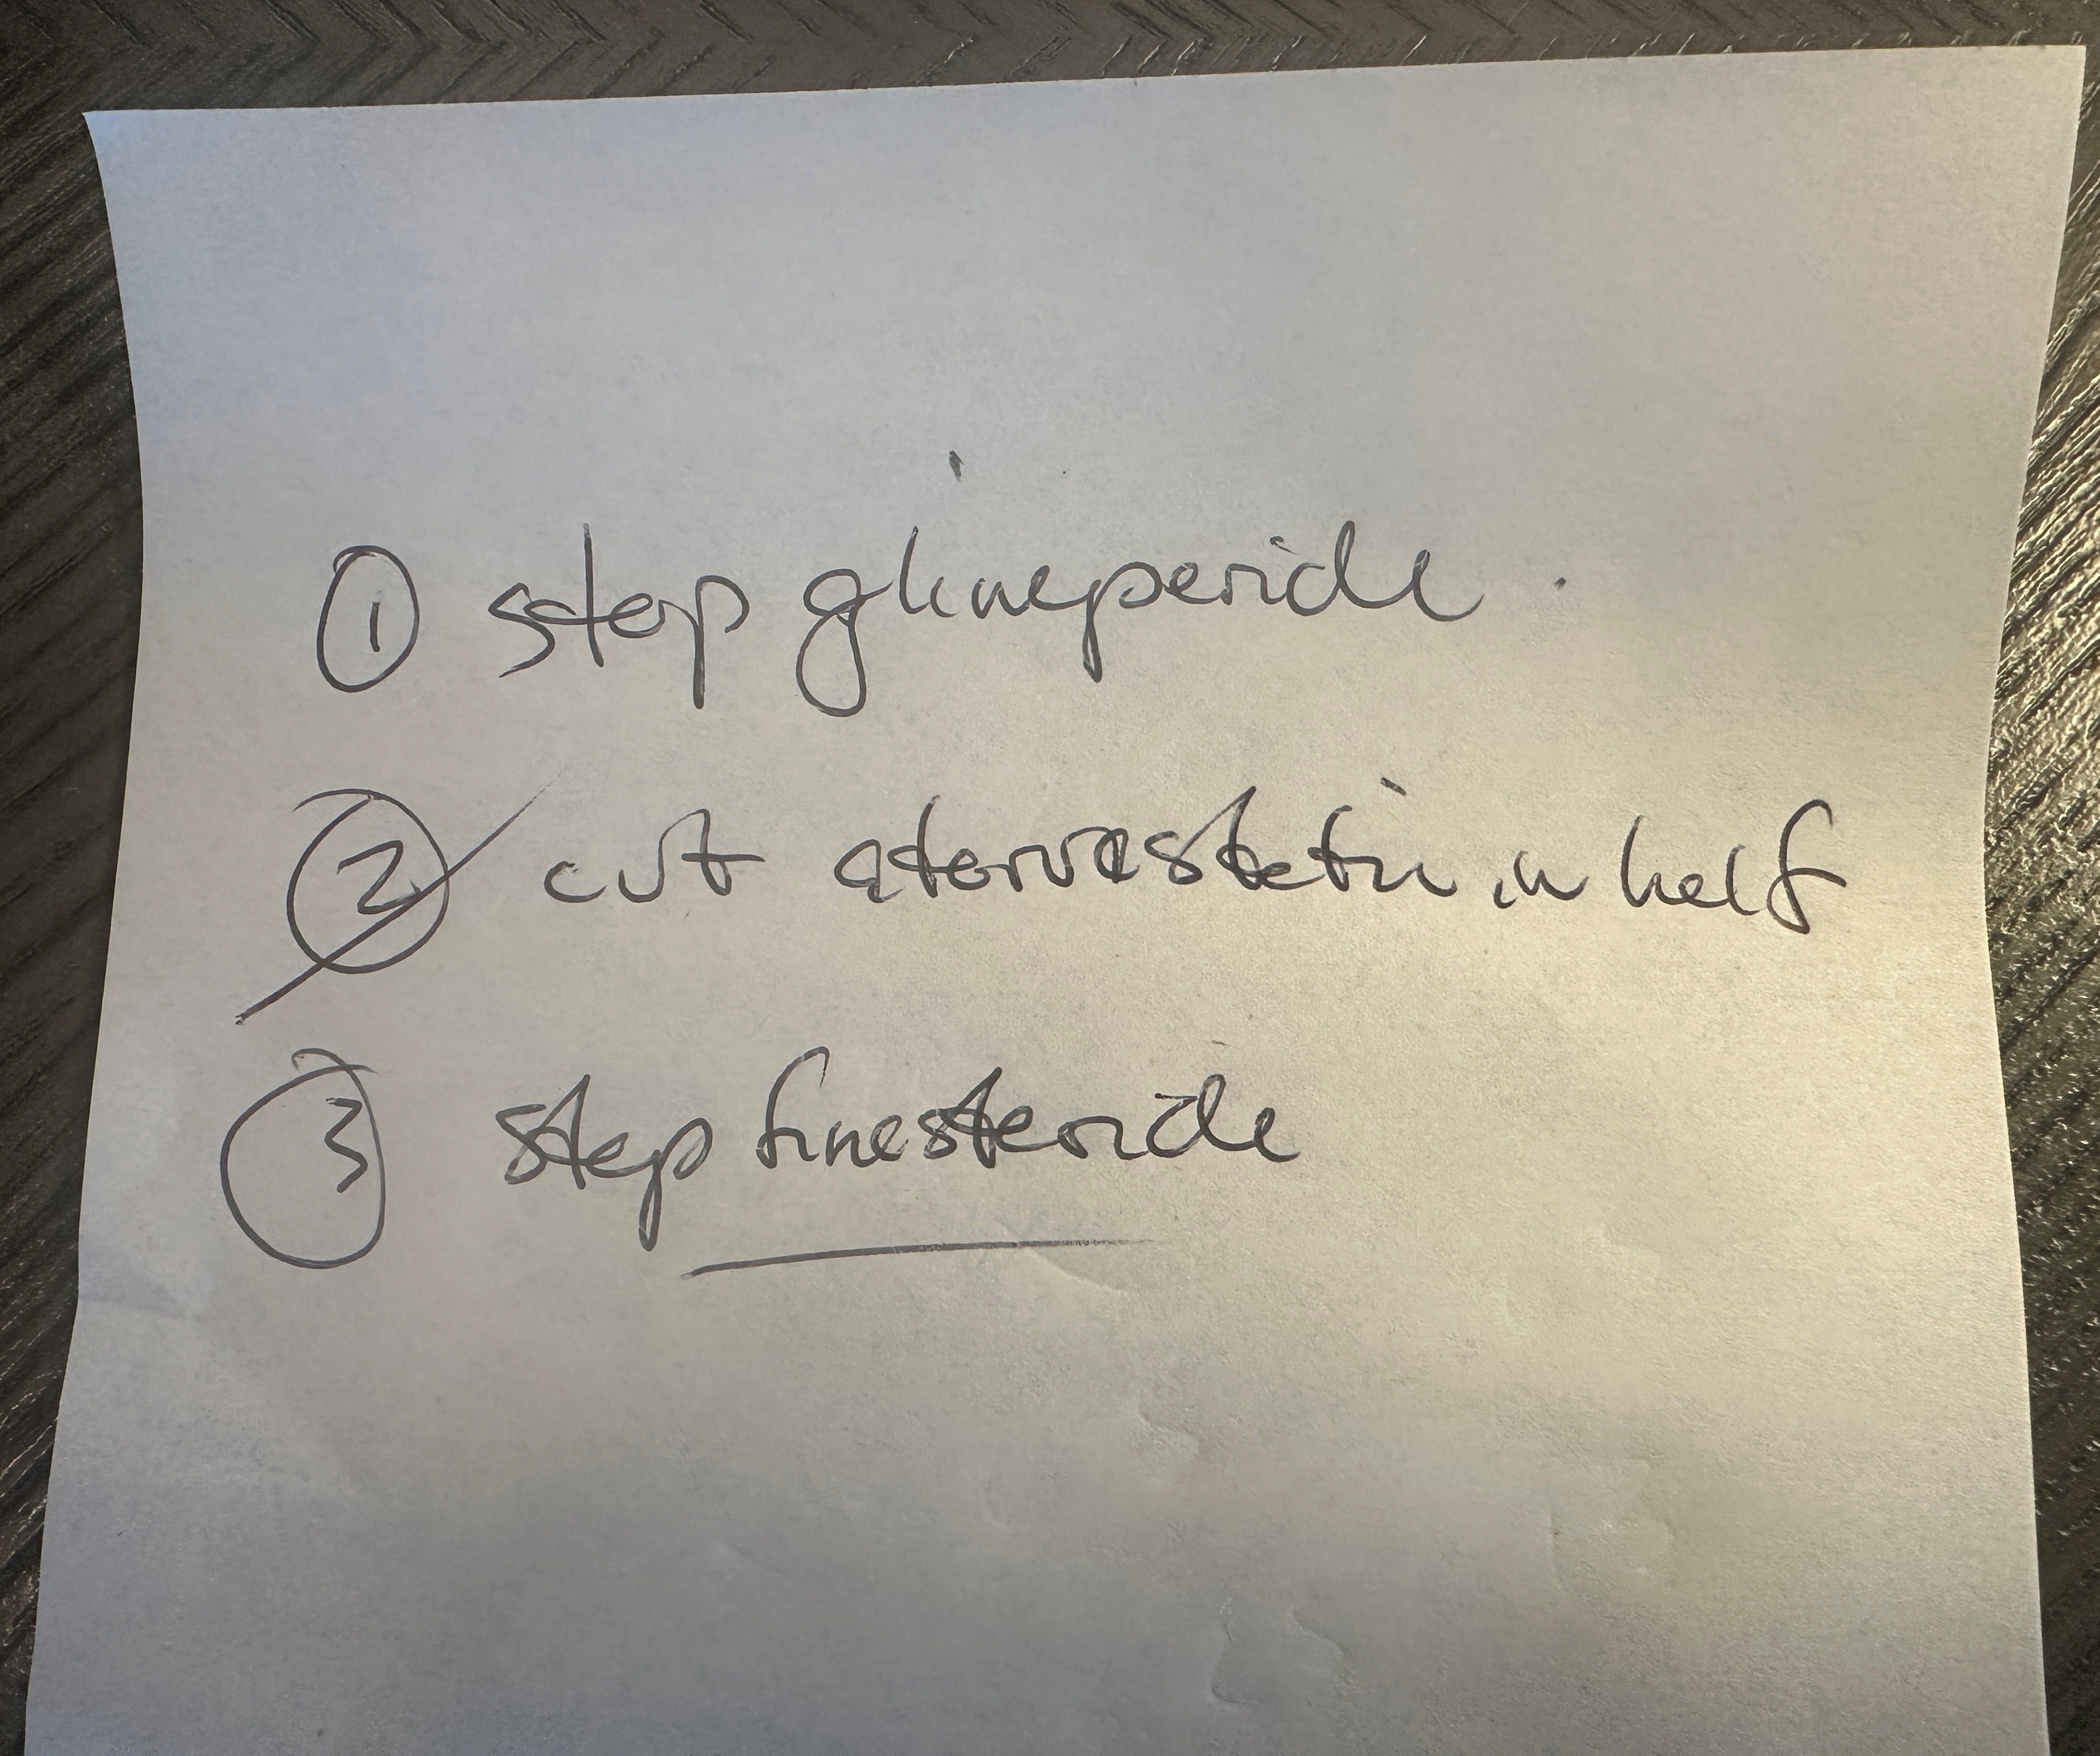 ① stop glimeperide.
② cut atorvastatin in half
③ stop finasteride